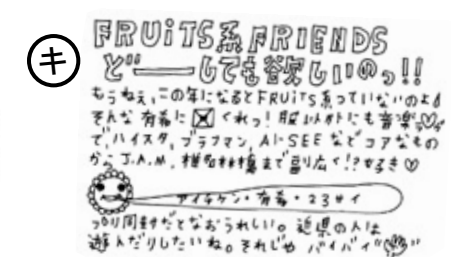 キ
FRUiTS系FRIENDS
どーーしても欲しいのっ!!
もうねぇ、この年になるとFRUiTS系っていないのよ
そんな有希に✉くれっ! 服以外にも音楽♡
で、ハイスタ、ブラフマン、AiにSEEなどコアなもの
から J.A.M、椎名林檎まで幅広く!?好き♡
アイチケン・有希・23サイ
同封だとなおうれしい。近県の人は
遊んだりしたいね。それじゃ バイバイ"